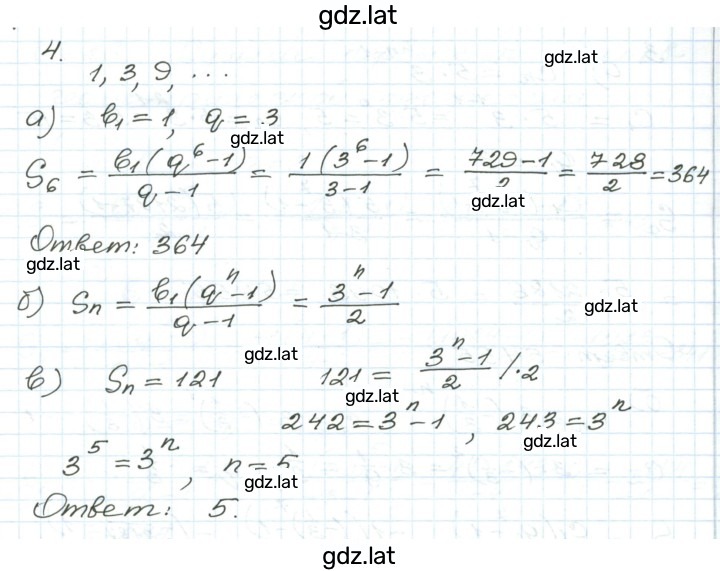 gdz.lat
4.
1, 3, 9, ...
gdz.lat
а) b₁ = 1, q = 3
gdz.lat
S₆ = b₁(q⁶-1)/q-1 = 1(3⁶-1)/3-1 = 729-1/2 = 728/2 = 364
gdz.lat
Ответ: 364
gdz.lat
б) Sₙ = b₁(qⁿ-1)/q-1 = 3ⁿ-1/2
gdz.lat
gdz.lat
в) Sₙ = 121 121 = 3ⁿ-1/2 /·2
gdz.lat
242 = 3ⁿ-1, 243 = 3ⁿ
gdz.lat
3⁵ = 3ⁿ, n = 5
gdz.lat
Ответ: 5.
gdz.lat